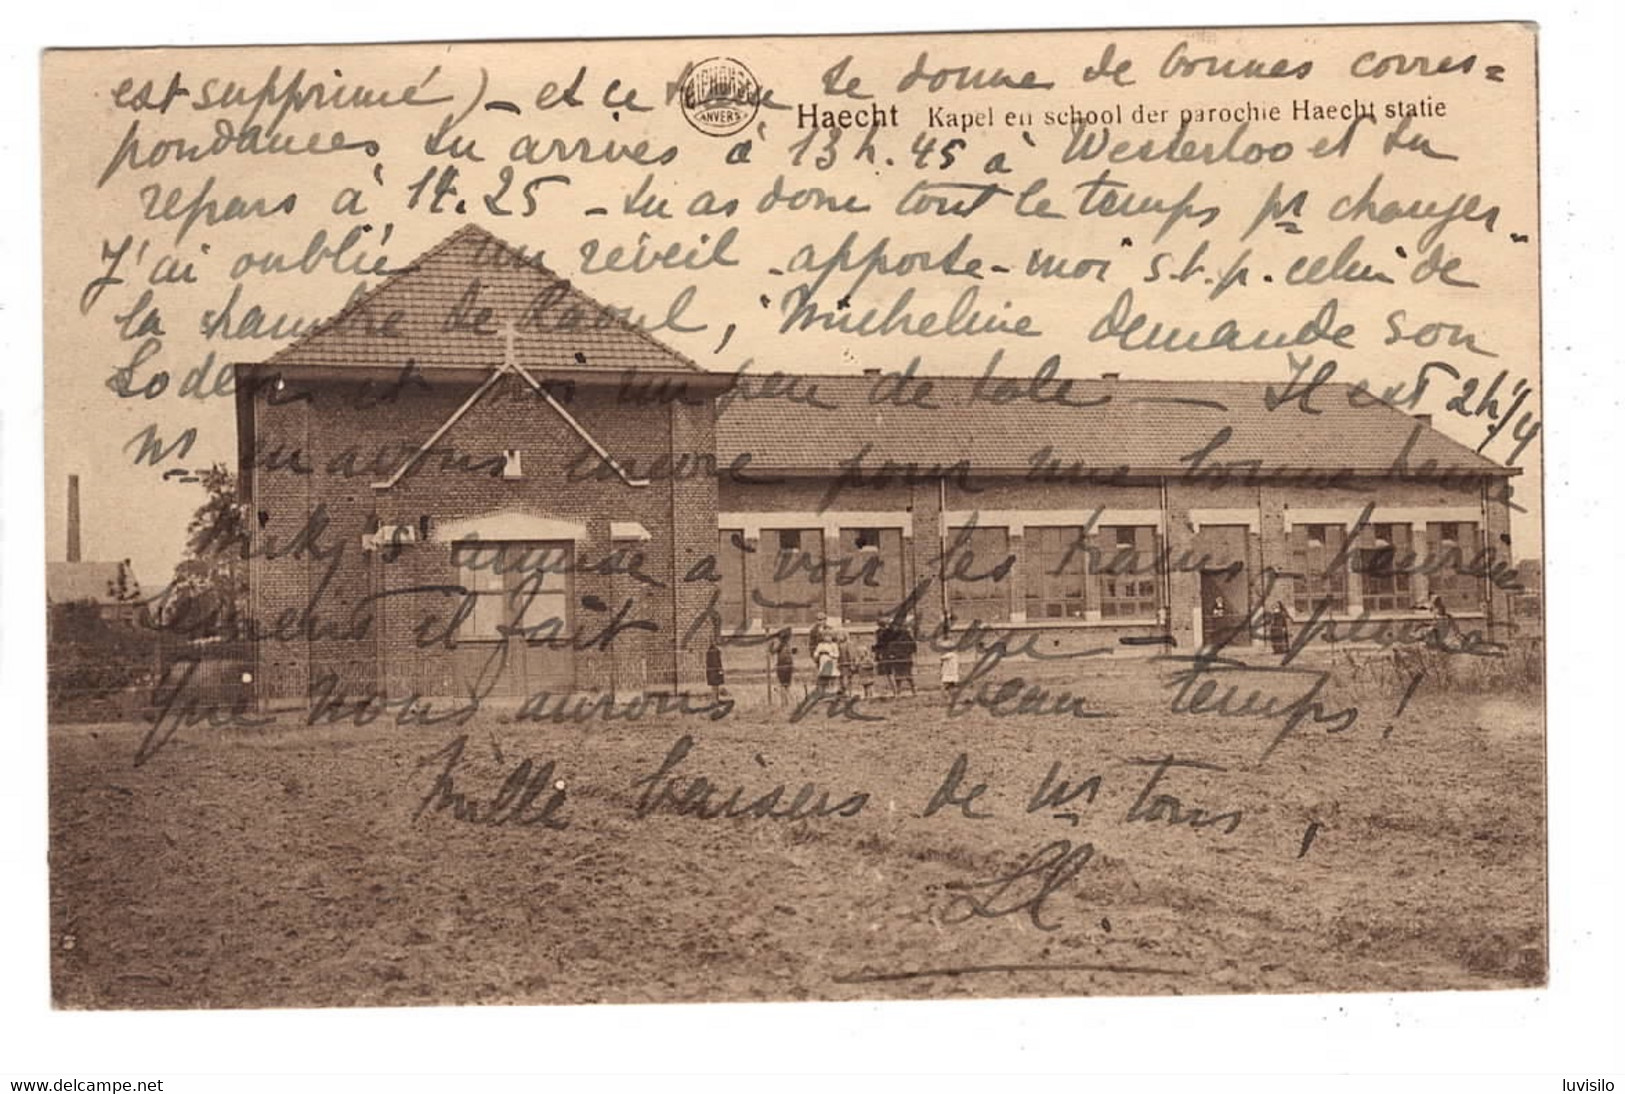 est supprimé) - et ce train te donne de bonnes corres=
ALPHONSE
ANVERS
Haecht Kapel en school der parochie Haecht statie
pondances, tu arrives à 13 h. 45 à Westerloo et tu
repars à 14.25 - tu as donc tout le temps pr changer -
J'ai oublié un réveil - apporte-moi s.t.p. celui de
la chambre de Raoul, Micheline demande son
Loden et moi un peu de tole - Il est 2h 1/4
nr en avons encore pour une bonne heure
Miky s'amuse à voir les trains, heureu
sement il fait très beau - Je pense
que nous aurons du beau temps!
Mille baisers de nr tous,
delcampe.net
luvisilo